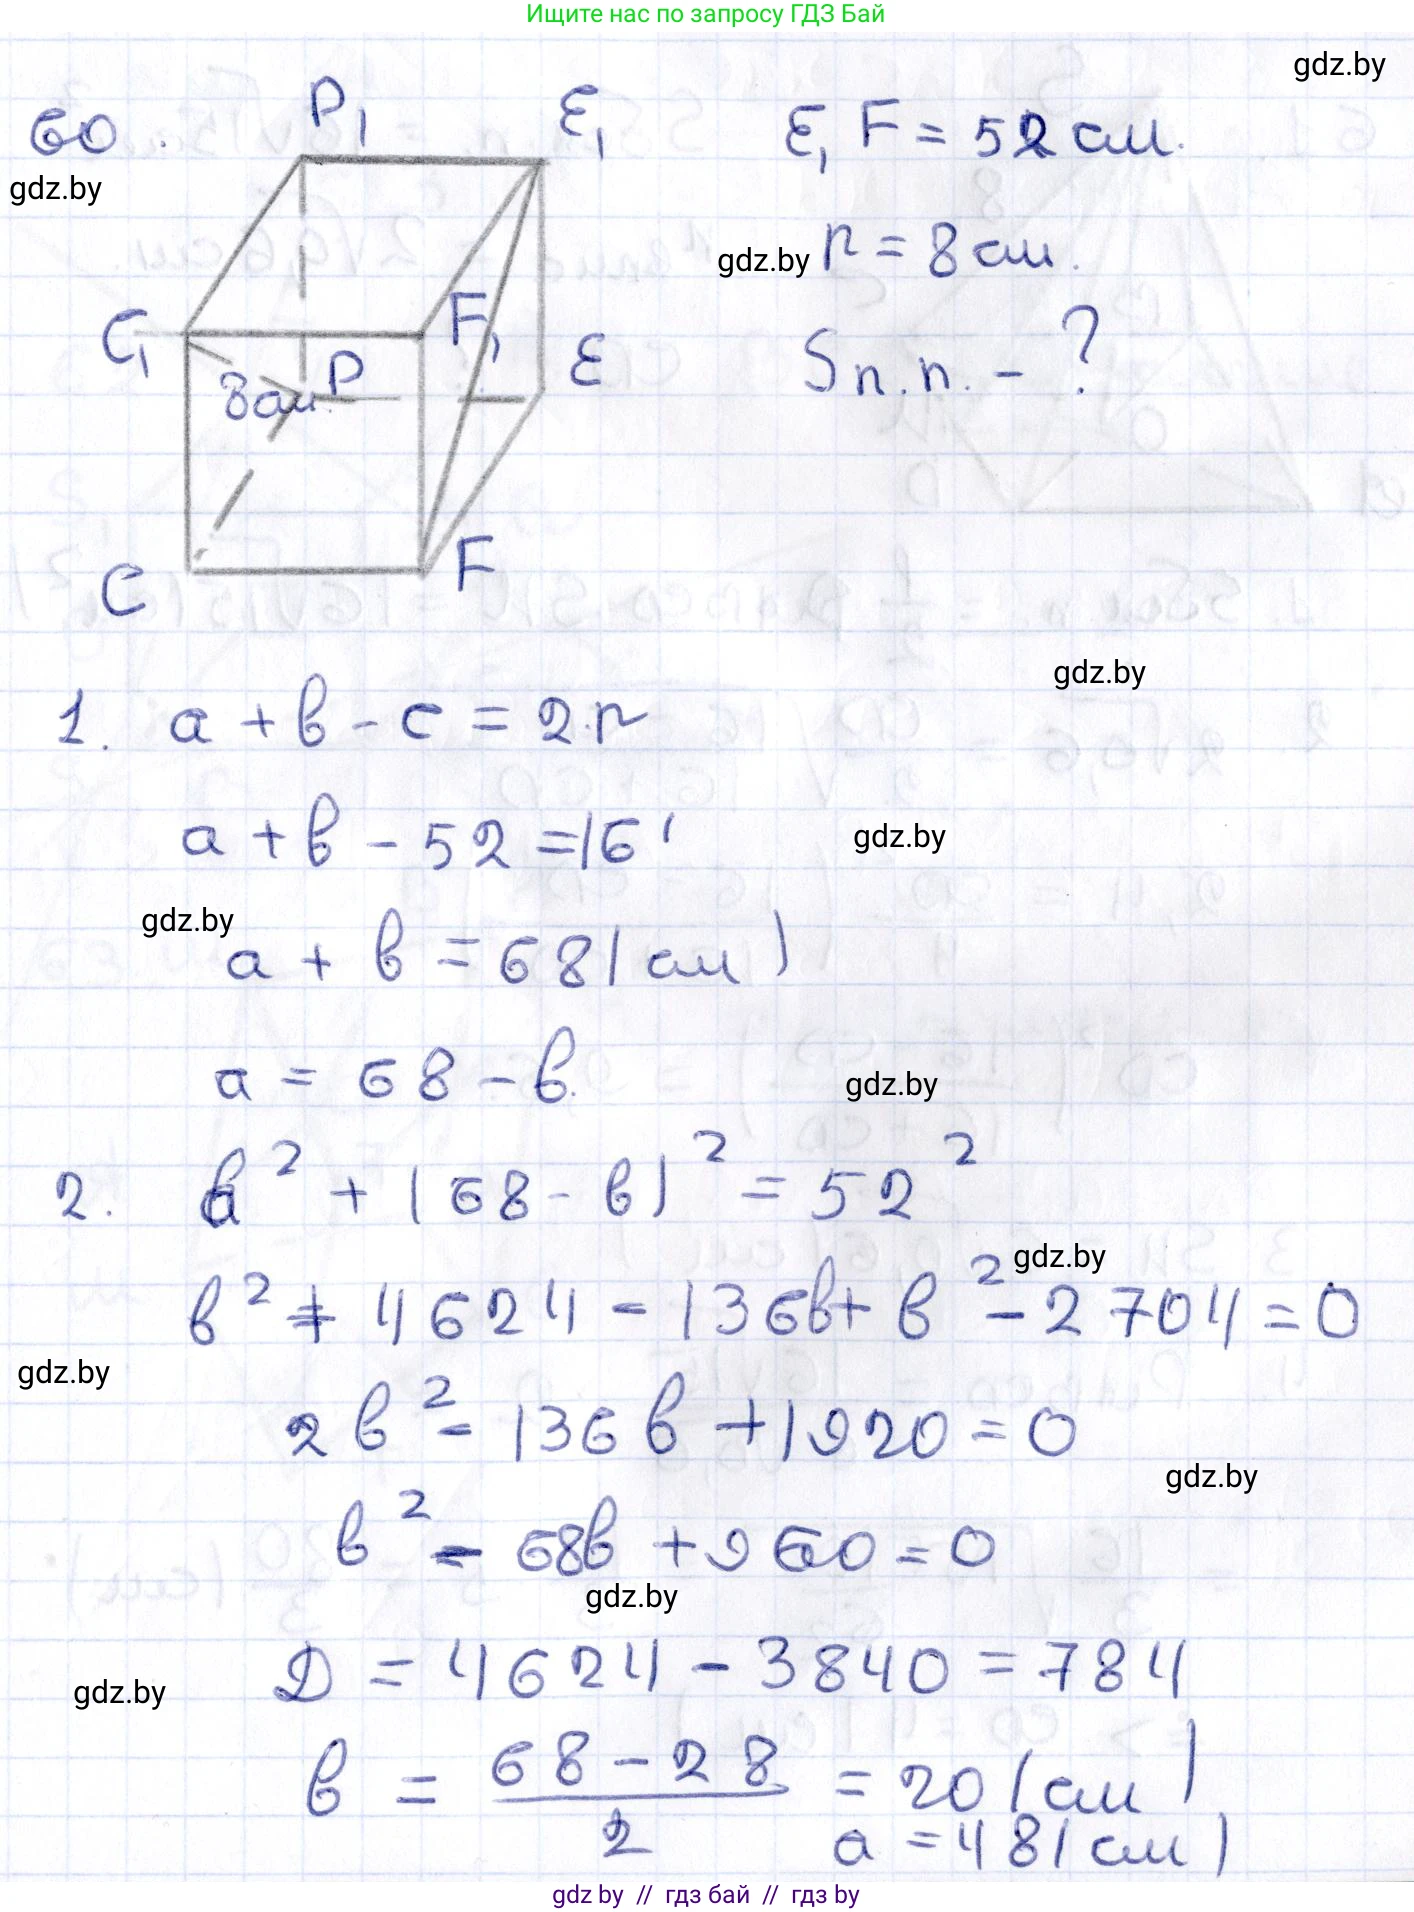 Ищите нас по запросу ГДЗ Бай
gdz.by
60.
P₁
E₁
E₁F = 52 см.
gdz.by
gdz.by
r = 8 см.
C₁
F₁
8 см.
P
E
Sп.п. - ?
C
F
gdz.by
1. a + b - c = 2·r
a + b - 52 = 16
gdz.by
gdz.by
a + b = 68 (см)
a = 68 - b.
gdz.by
2. b² + (68 - b)² = 52²
gdz.by
b² + 4624 - 136b + b² - 2704 = 0
gdz.by
2b² - 136b + 1920 = 0
gdz.by
b² - 68b + 960 = 0
gdz.by
D = 4624 - 3840 = 784
gdz.by
b = (68 - 28)/2 = 20 (см)
a = 48 (см)
gdz.by // гдз бай // гдз by